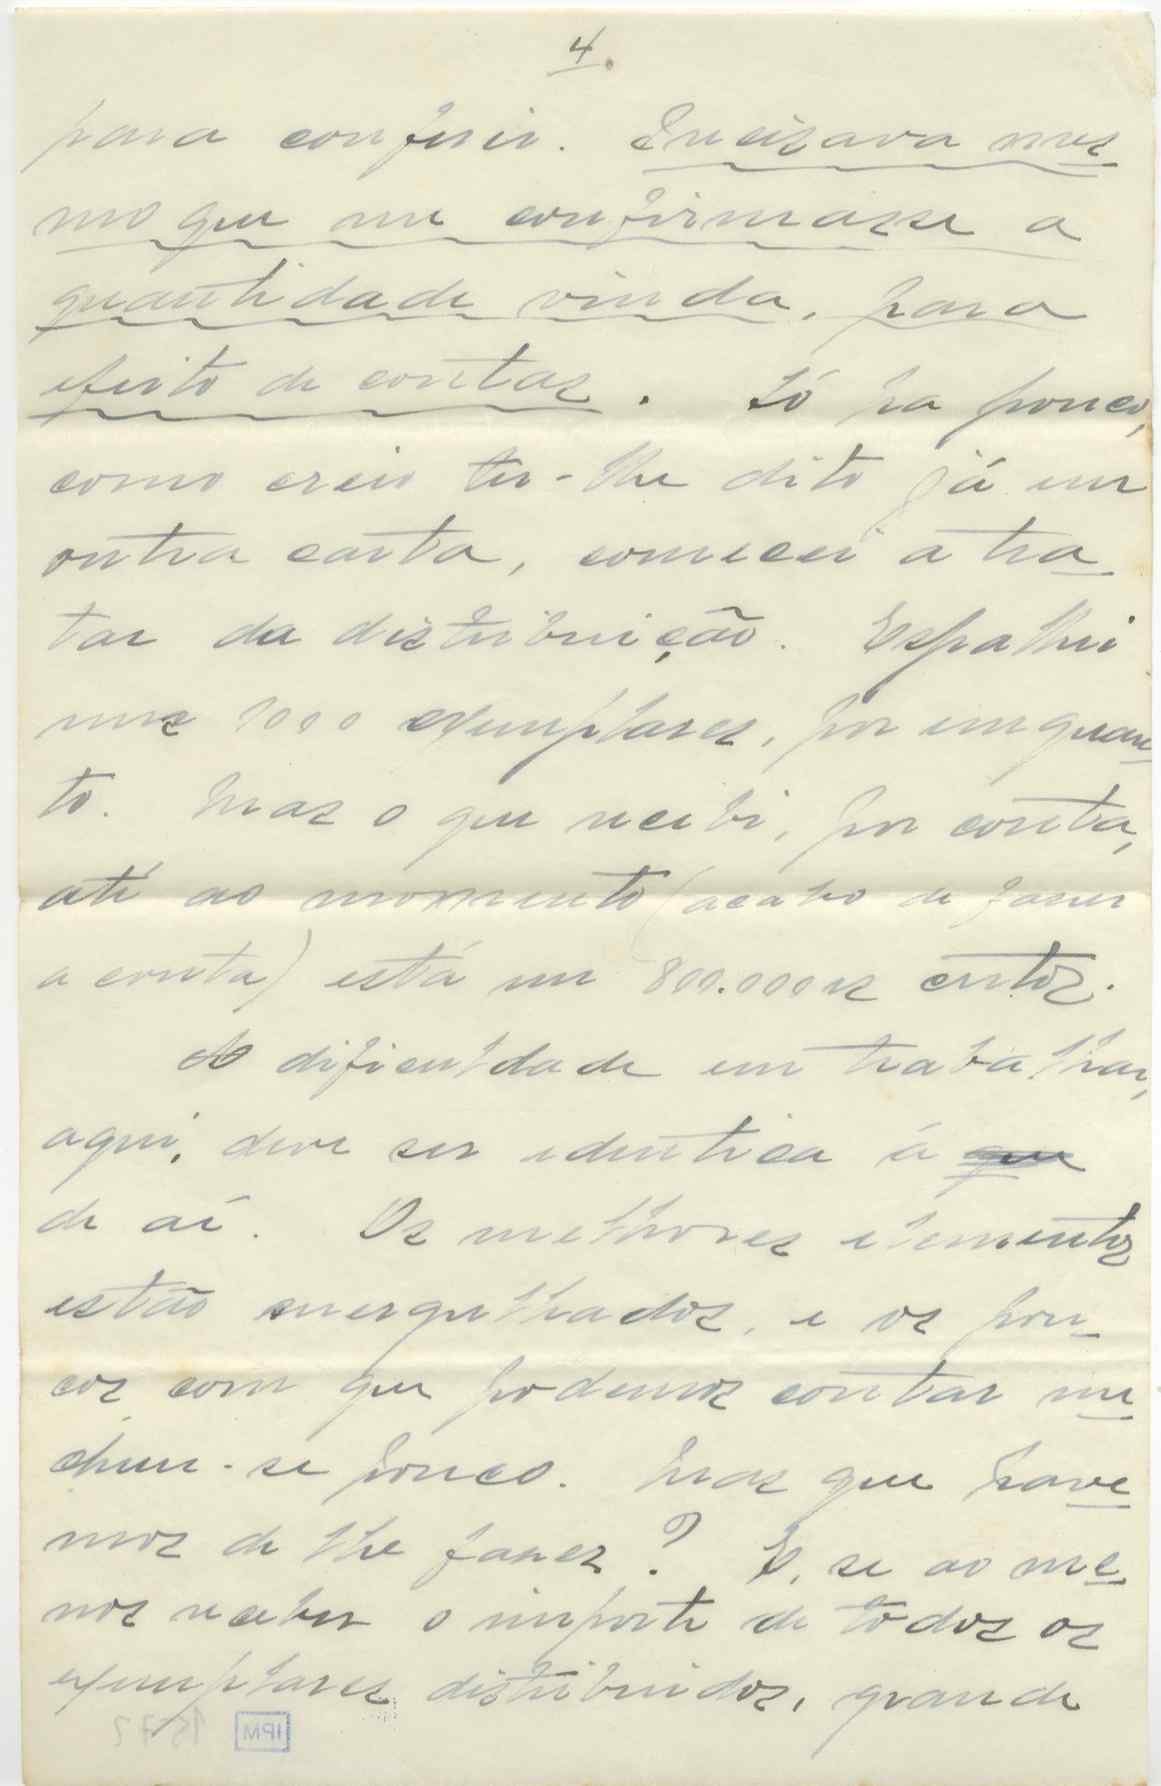 4.
para conferir. Precisava mes
mo que me confirmasse a
quantidade vinda, para
efeito de contas. Só ha pouco,
como creio ter-lhe dito já em
outra carta, comecei a tra-
tar da distribuição. Espalhei
uns 1000 exemplares, por emquan-
to. Mas o que recebi, por conta,
até ao momento (acabo de fazer
a conta) está em 800.000 rs certos.
A dificuldade em trabalhar,
aqui, deve ser identica á que
de aí. Os melhores elementos
estão mergulhados, e os pou-
cos com que podemos contar me
chem-se pouco. Mas que have
mos de lhe fazer? E, se ao me
nos receber o importe de todos os
exemplares distribuidos, grande
IPM